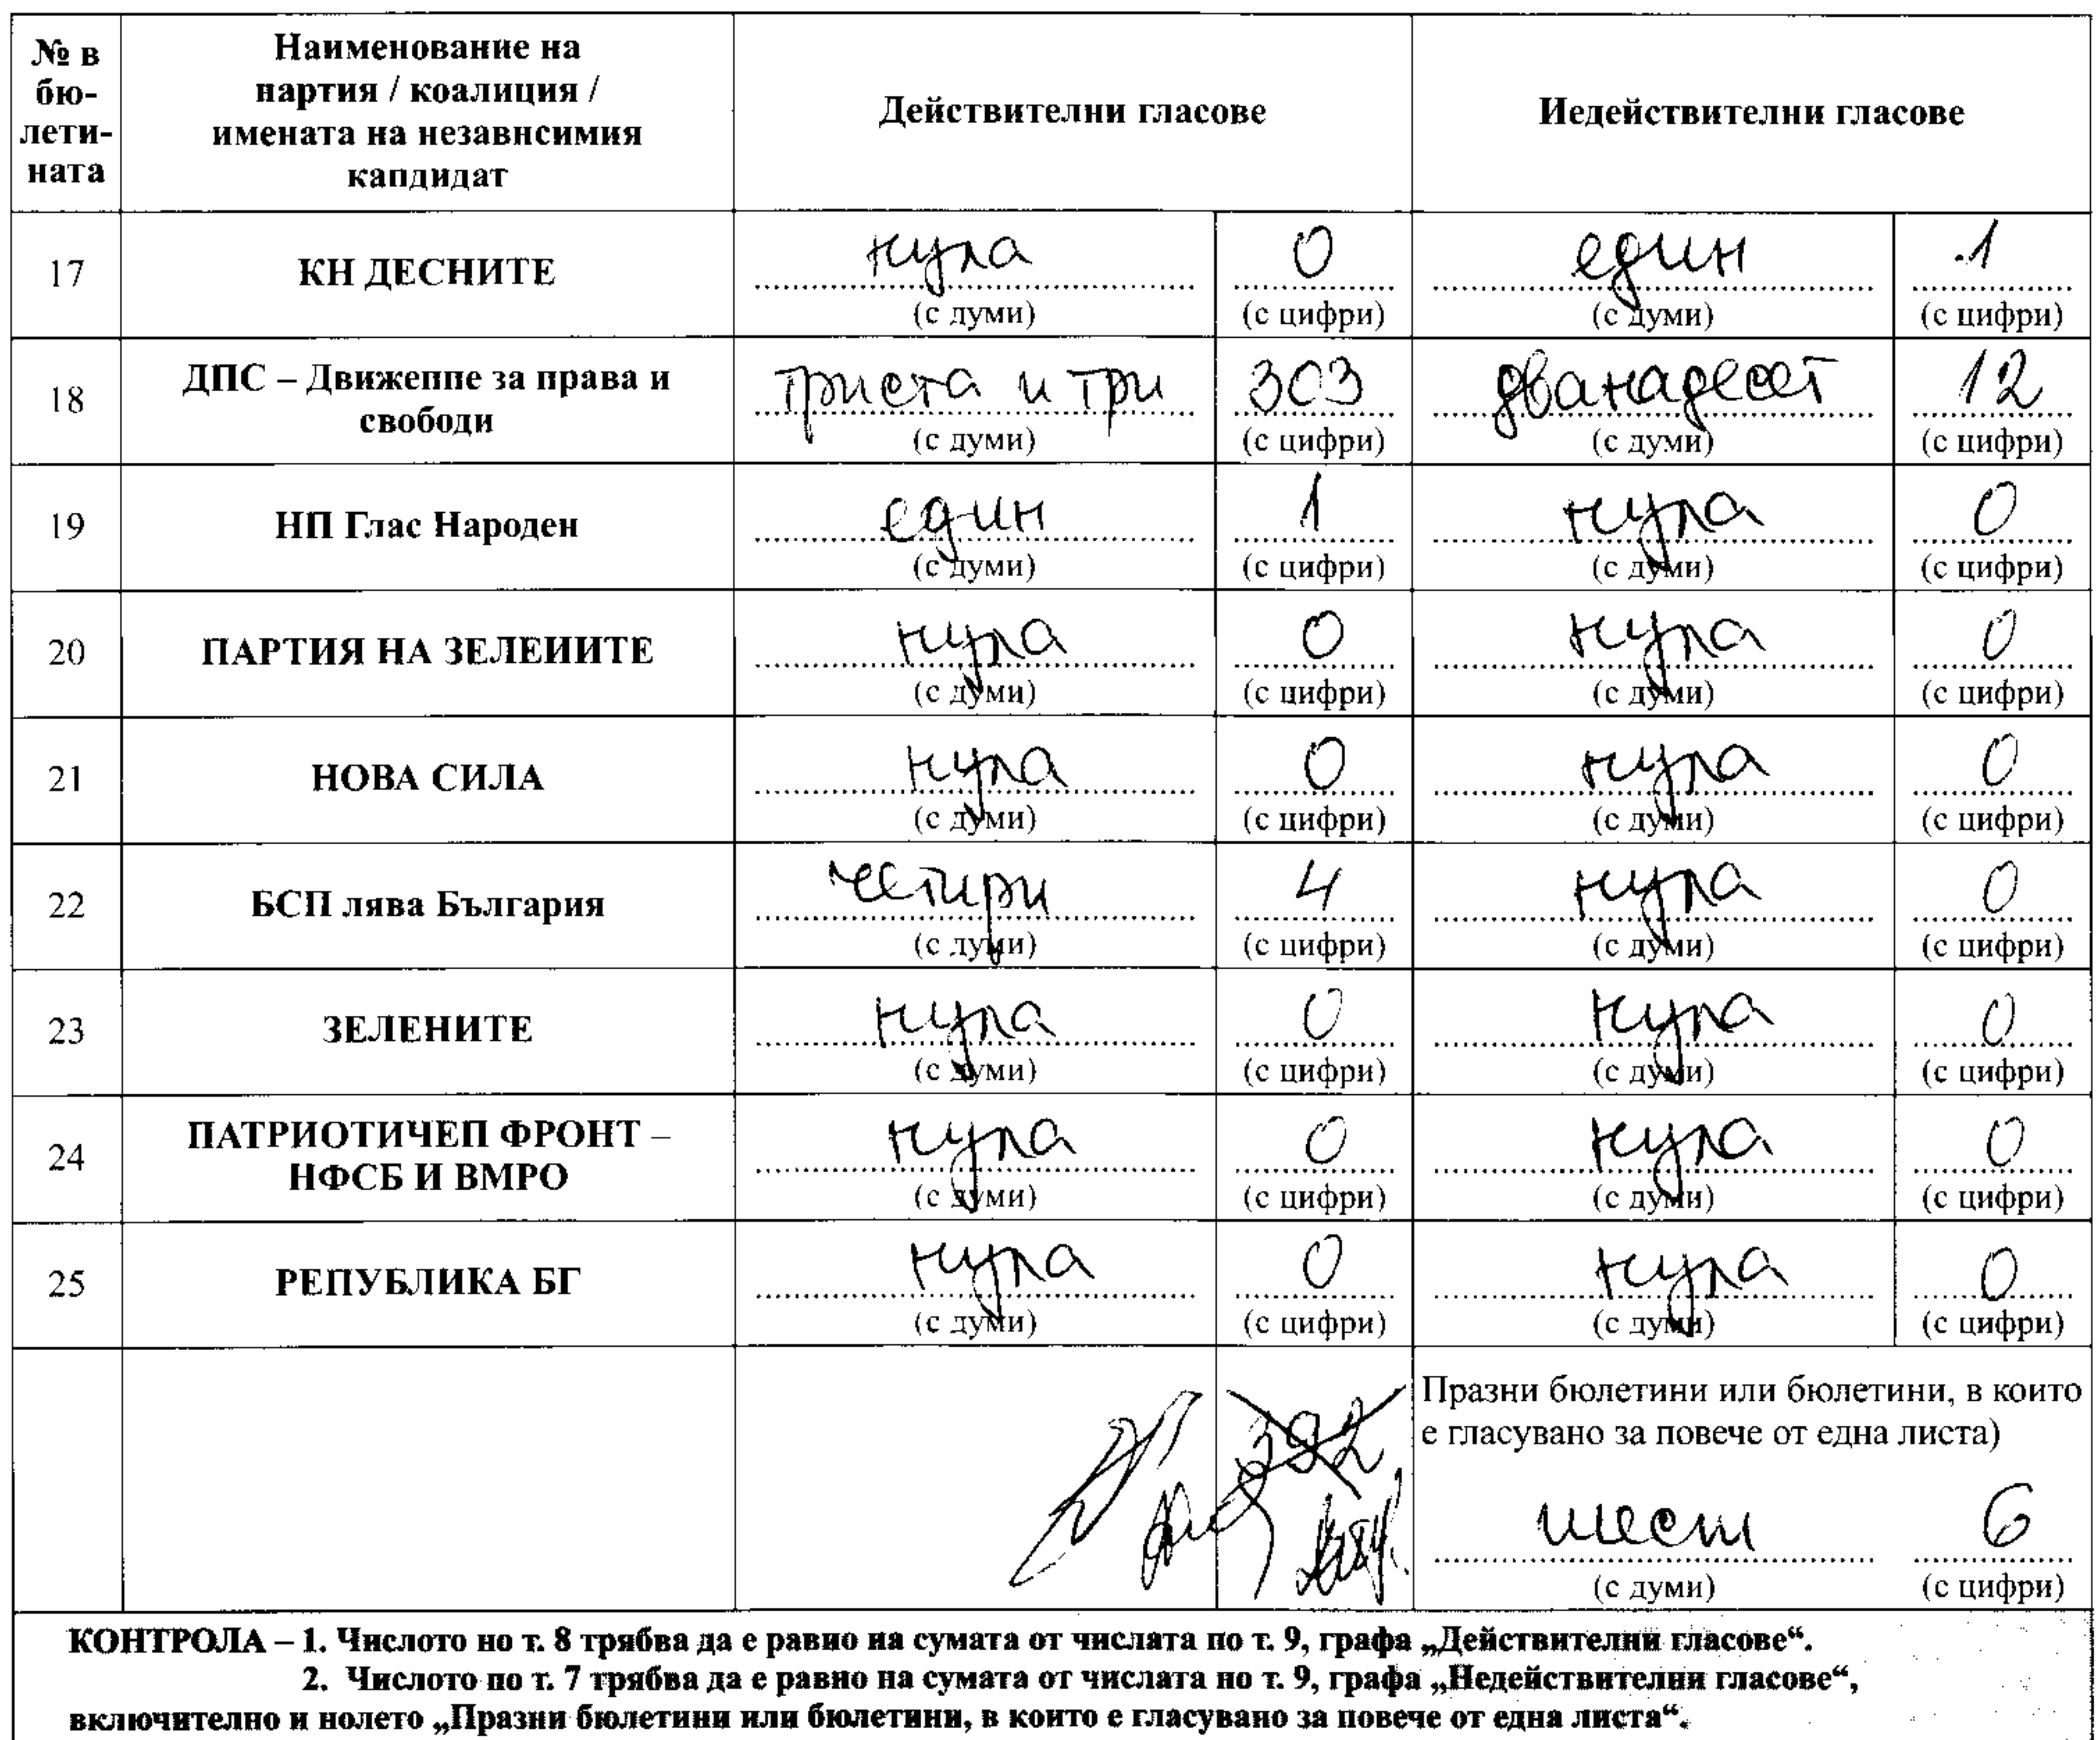 № в бю-лети-ната	Наименование на партия / коалиция / имената на независимия кандидат	Действителни гласове	Недействителни гласове
17	КН ДЕСНИТЕ	нула	0	един	1
(с думи)	(с цифри)	(с думи)	(с цифри)
18	ДПС – Движение за права и свободи	триста и три	303	дванадесет	12
(с думи)	(с цифри)	(с думи)	(с цифри)
19	НП Глас Народен	един	1	нула	0
(с думи)	(с цифри)	(с думи)	(с цифри)
20	ПАРТИЯ НА ЗЕЛЕНИТЕ	нула	0	нула	0
(с думи)	(с цифри)	(с думи)	(с цифри)
21	НОВА СИЛА	нула	0	нула	0
(с думи)	(с цифри)	(с думи)	(с цифри)
22	БСП лява България	четири	4	нула	0
(с думи)	(с цифри)	(с думи)	(с цифри)
23	ЗЕЛЕНИТЕ	нула	0	нула	0
(с думи)	(с цифри)	(с думи)	(с цифри)
24	ПАТРИОТИЧЕН ФРОНТ – НФСБ И ВМРО	нула	0	нула	0
(с думи)	(с цифри)	(с думи)	(с цифри)
25	РЕПУБЛИКА БГ	нула	0	нула	0
(с думи)	(с цифри)	(с думи)	(с цифри)
Празни бюлетини или бюлетини, в които
392	е гласувано за повече от една листа)
шест	6
(с думи)	(с цифри)
КОНТРОЛА – 1. Числото по т. 8 трябва да е равно на сумата от числата по т. 9, графа „Действителни гласове“.
2. Числото по т. 7 трябва да е равно на сумата от числата по т. 9, графа „Недействителни гласове“,
включително и полето „Празни бюлетини или бюлетини, в които е гласувано за повече от една листа“.